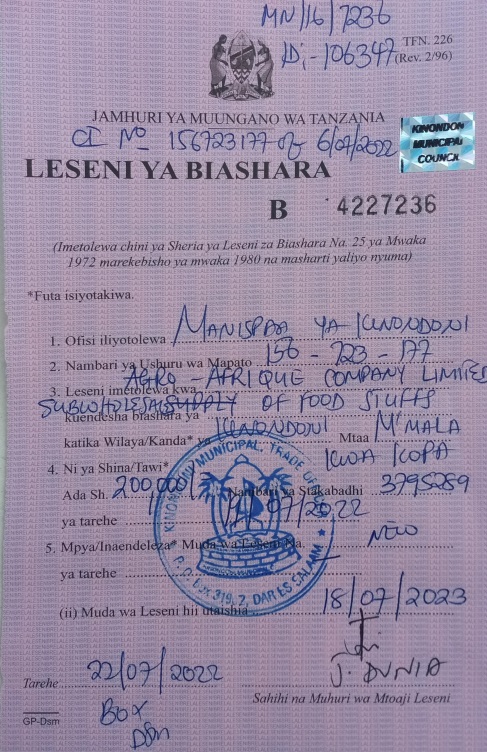 MN/16/7236
TFN. 226
Di-106347 (Rev. 2/96)
JAMHURI YA MUUNGANO WA TANZANIA
CI No 156723177 of 6/07/2022
KINONDONI
MUNICIPAL
COUNCIL
LESENI YA BIASHARA
B 4227236
(Imetolewa chini ya Sheria ya Leseni za Biashara Na. 25 ya Mwaka
1972 marekebisho ya mwaka 1980 na masharti yaliyo nyuma)
*Futa isiyotakiwa.
1. Ofisi iliyotolewa MANISPAA YA KINONDONI
2. Nambari ya Ushuru wa Mapato 156-723-177
3. Leseni imetolewa kwa AGRO-AFRIQUE COMPANY LIMITED
kuendesha biashara ya SUBWHOLESALE SUPPLY OF FOOD STUFFS
katika Wilaya/Kanda* ya KINONDONI Mtaa M'MALA
4. Ni ya Shina/Tawi* KWA KOPA
Ada Sh. 200,000/ Nambari ya Stakabadhi 3795289
ya tarehe /07/2022
5. Mpya/Inaendeleza* Muda wa Leseni Na. NEW
ya tarehe
(ii) Muda wa Leseni hii utaishia 18/07/2023
KINONDONI MUNICIPAL TRADE
DAR ES SALAAM
J. DUNIA
Tarehe 22/07/2022
Sahihi na Muhuri wa Mtoaji Leseni
GP-Dsm
BOX
Dsm